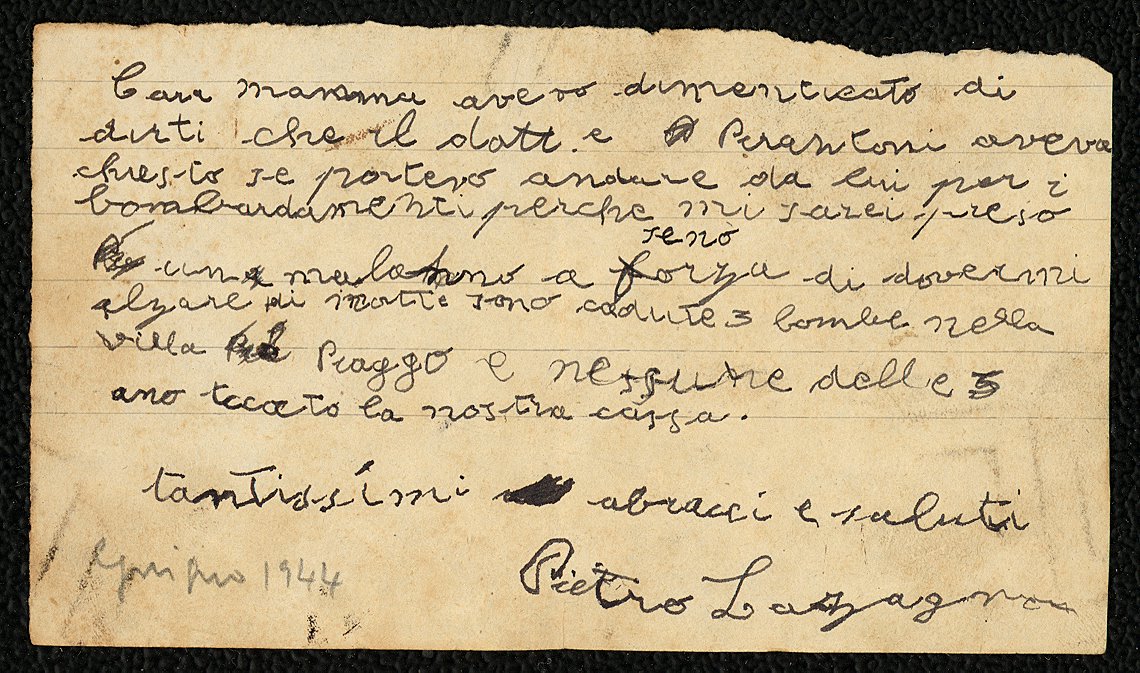 Cara mamma avevo dimenticato di
dirti che il dott. e Perantoni aveva
chiesto se potevo andare da lui per i
bombardamenti perche mi sarei preso
seno
un malanno a forza di dovermi
alzare di notte sono cadute 3 bombe nella
villa Piaggo e nessune delle 3
ano tccato la nostra cassa.
tantissimi abracci e saluti
Pietro Lazagna
1944